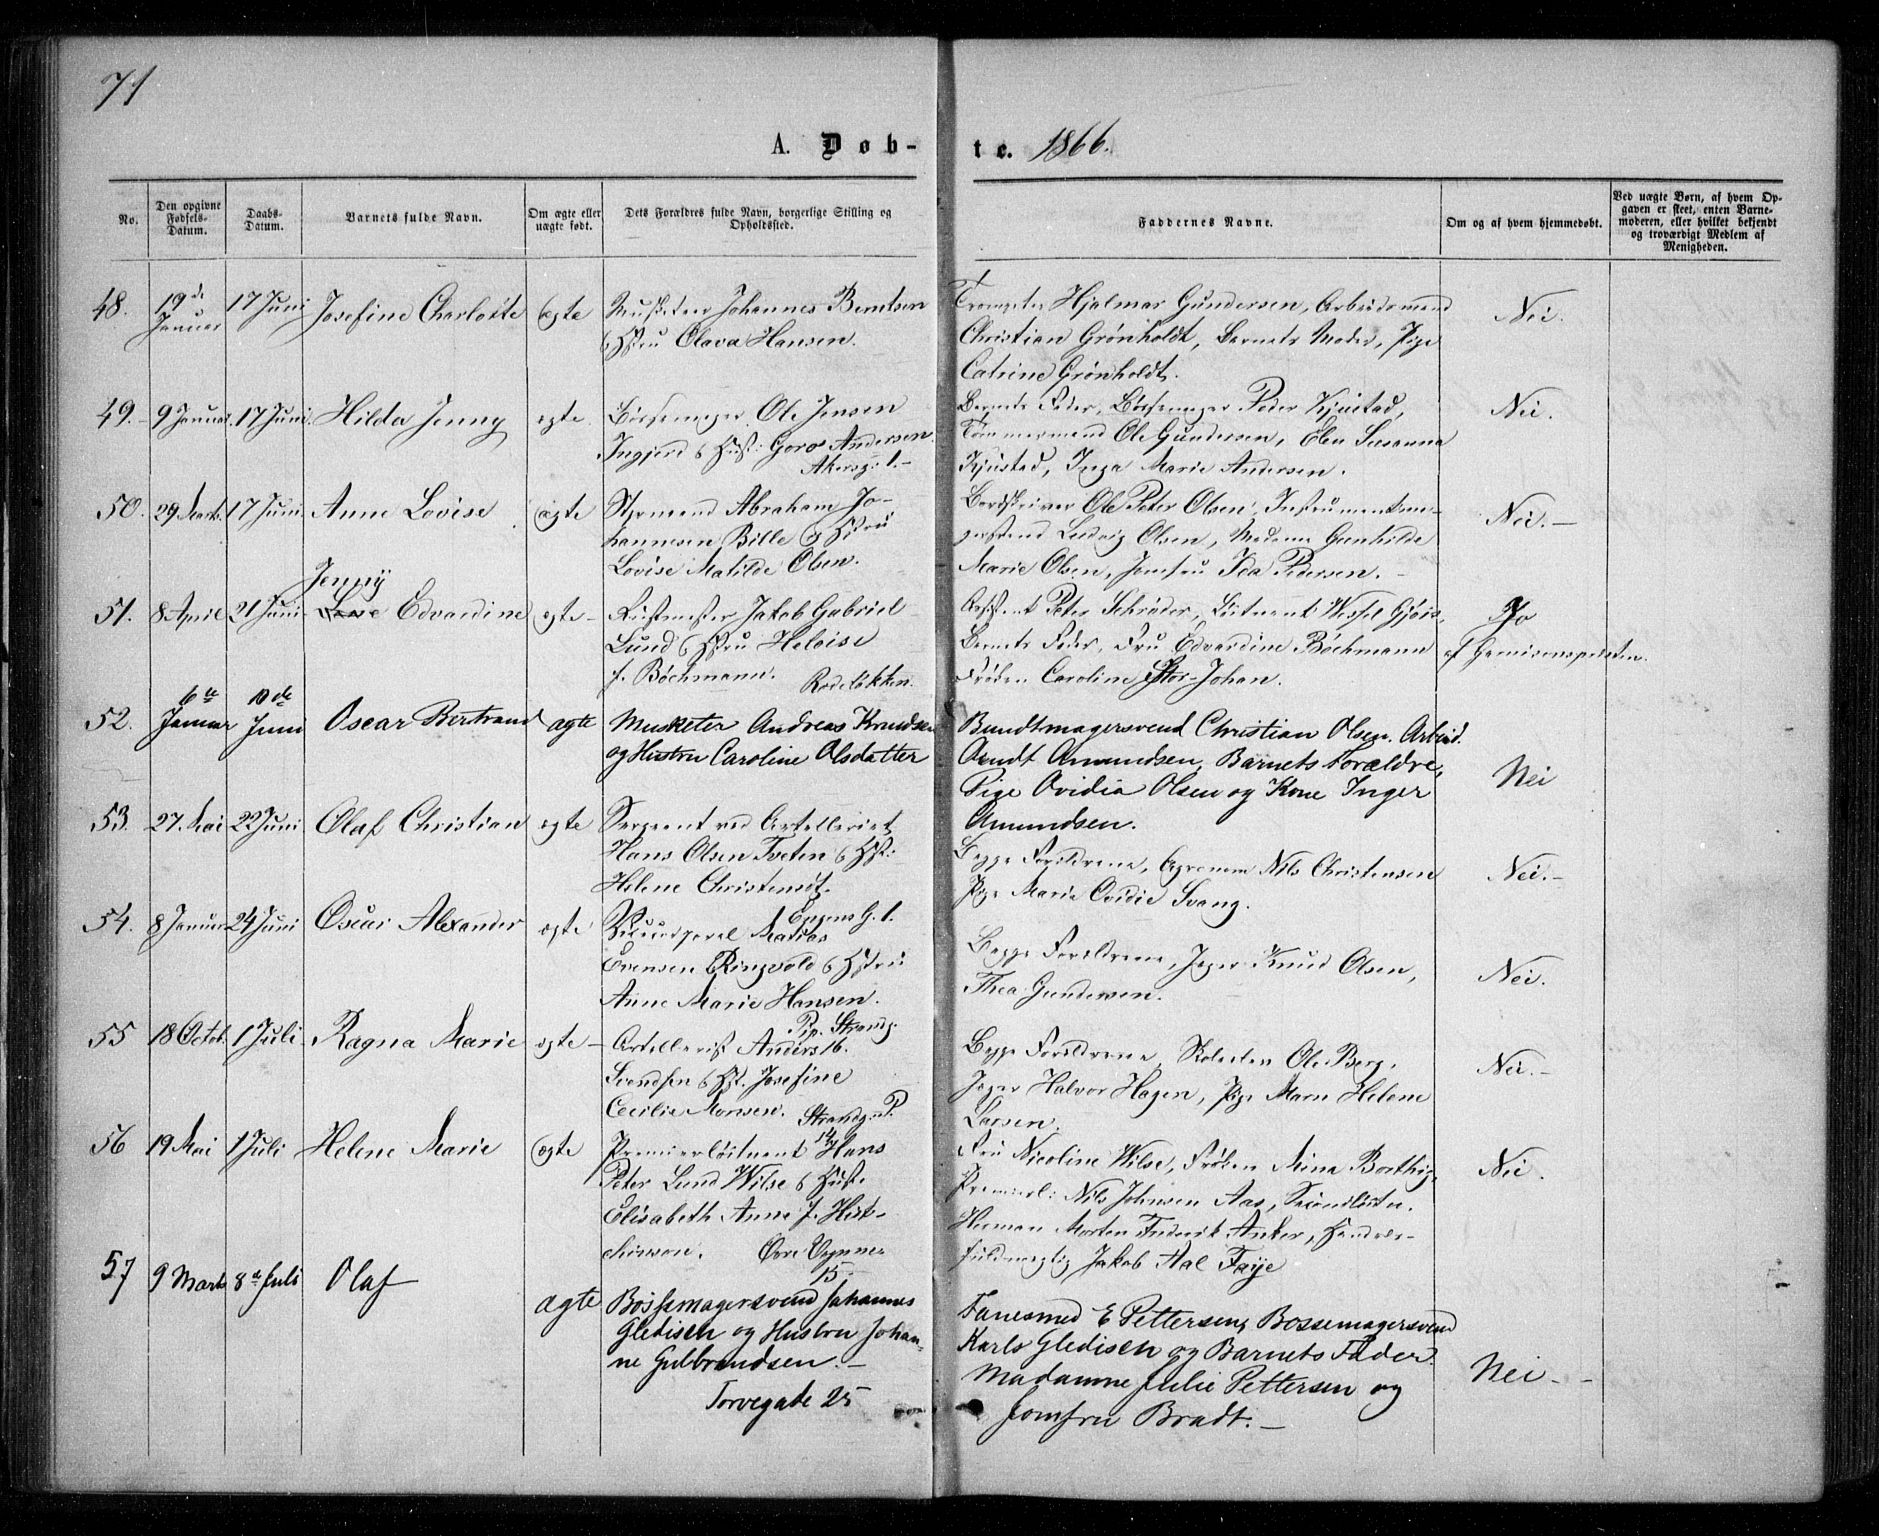 71
A. Døb- te. 1866.
No.
Den opgivne Fødsels-Datum.
Daabs-Datum.
Barnets fulde Navn.
Om ægte eller uægte født.
Dets Forældres fulde Navn, borgerlige Stilling og Opholdssted.
Faddernes Navne.
Om og af hvem hjemmedøbt.
Ved uægte Børn, af hvem Opgaven er skeet, enten Barnemoderen, eller hvilket bekjendt og troværdigt Medlem af Menigheden.
48. 19de Januar 17 Juni Josefine Charlotte ægte Musketeer Johannes Berntsen
& Hstru Olava Hansen.
Trompeter Hjalmar Gundersen, Arbeidsmand
Christian Grønholdt, Barnets Moder, Pige
Catrine Grønholdt.
Nei.
49. 9 Januar 17 Juni. Hilda Jenny ægte. Bøssemager Ole Jensen
Ingjerd & Hust: Goro Andersen.
Akersg: 1.-
Barnets Fader, Bøssemager Peder Kjustad,
Tømmermand Ole Gundersen, Susanna
Kjustad, Inga Marie Andersen.
Nei.
50. 29 Marts 17 Juni Anne Lovise ægte Styrmand Abraham Jo-
hannesen Bille & Hstru
Lovise Matilde Olsen.
Ole Peter Olsen, Instrumentma-
gersvend Ludvig Olsen, Madame Gunhilde
Marie Olsen, Jomfru Ida Pedersen.-
Nei.-
Jenny
51. 8 April 21 Juni Edvardine ægte- Rustmester Jakob Gabriel
Lund & Hstru Heloise
f. Bøchmann. Rodeløkken.
Assistent Peter Schrøder, Løitnant Wessel
Barnets Fader, Fru Edvardine Bøchmann
Frøken Caroline Stor-Johan.
Jo
af Garnisonspresten.
52. 6te Januar 10de Juni Oscar Bertrand ægte Musketer Andreas Knudsen
og Hustru Caroline Olsdatter
Bundtmagersvend Christian Olsen. Arbeid.
Arndt Amundsen, Barnets Forældre,
Pige Ovidia Olsen og Kone Inger
Amundsen.
Nei
53. 27 Mai 22 Juni Olaf Christian ægte Sergeant ved Artelleriet
Hans Olsen Tveten & Hst:
Helene Christensdt.
Begge Forældrene, Nils Christensen
Pige Marie Ovidie Svang.
Nei.-
54. 8 Januar 24 Juni Oscar Alexander ægte G. 1.
Matias
Evensen Ringvold & Hstru
Anne Marie Hansen.
Begge Forældrene, Jæger Knud Olsen,
Thea Gundersen.
Nei.
55 18 Octob. 1 Juli Ragna Marie ægte- Pip. Strandg.
Artellerist Anders 16.
Svendsen & Hst. Josefine
Cecilie Monsen.
Begge Forældrene, Ole Berg,
Jæger Halvor Hagen, Pige Maren Helene
Larsen.
Nei.-
56 19 Mai 1 Juli Helene Marie ægte Strandg: P.
Premierløitnant 14 Hans
Peter Lund Wilse & Hust.
Elisabeth Anne f.
Øvre
15
Fru Nicoline Wilse, Frøken Mina Borthig,
Premierl: Nils Johnsen Aas, Secondløitn.
Herman Morten Frederik Anker,
fuldmægtig Jakob Aal Faye
Nei.
57 9 Marts 8de Juli Olaf ægte Bøssemagersvend Johannes
Gledisch og Hustru Johan-
ne Gulbrandsen.-
Torvegade 25
E Pettersen, Bossemagersvend
Karls Gledisch og Barnets Fader.
Madamme Julie Pettersen og
Jomfru Bradt.-
Nei.-